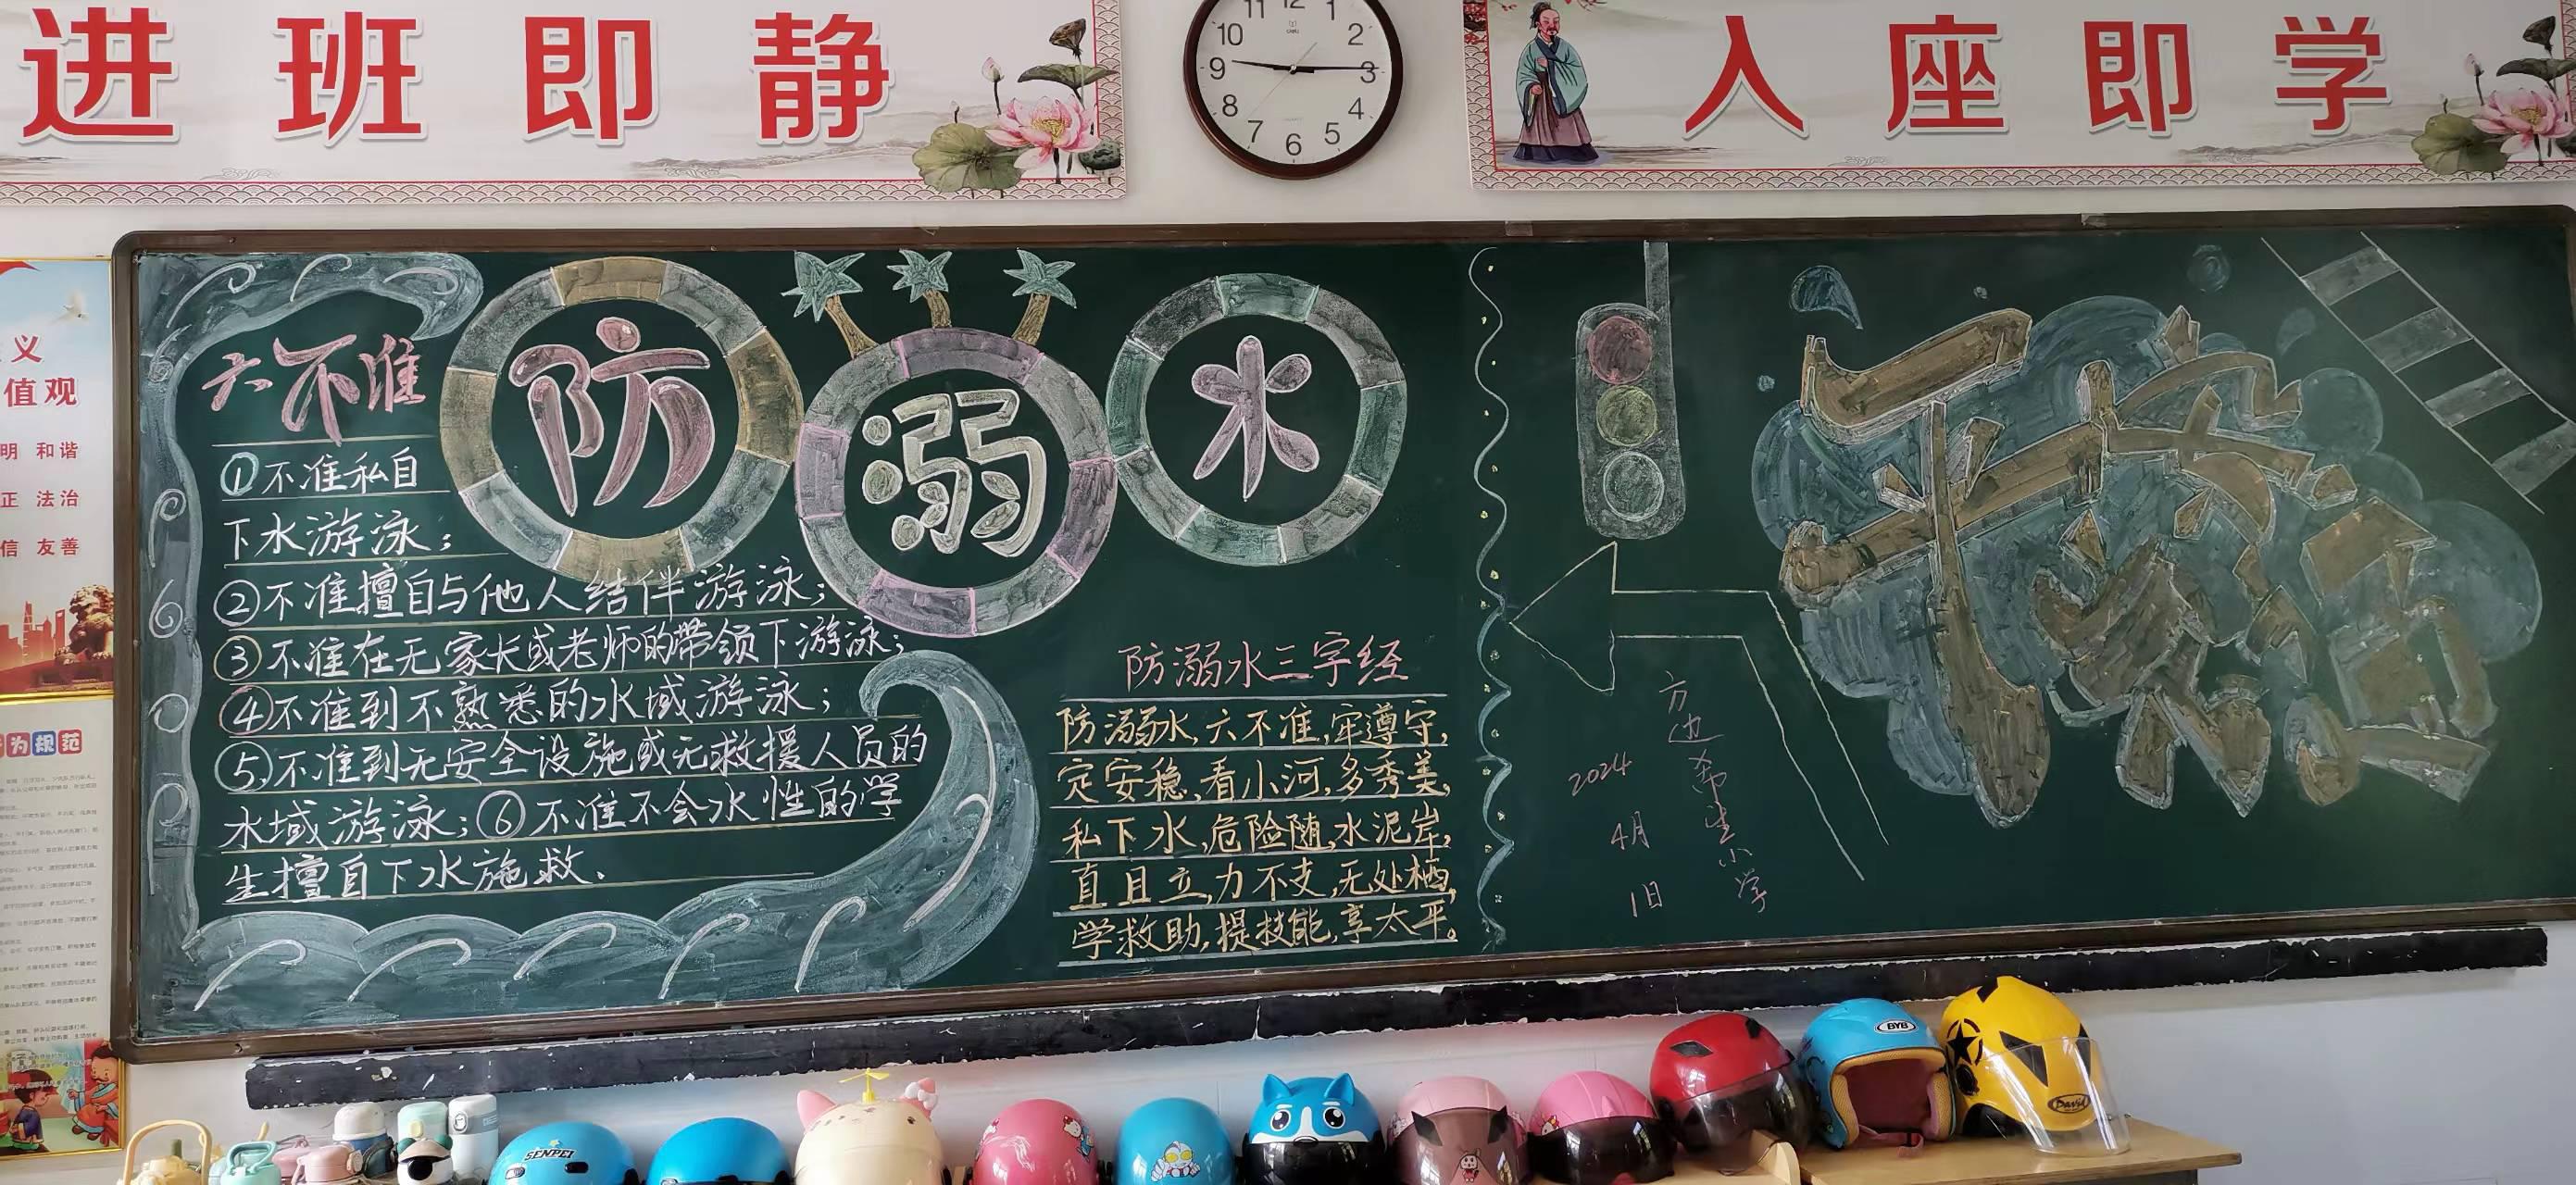 进班即静
入座即学
11 12 1
10 2
9 3
8 4
7 6 5
义
值观
明 和谐
正 法治
信 友善
为规范
六不准
防溺水
①不准私自
下水游泳;
②不准擅自与他人结伴游泳;
③不准在无家长或老师的带领下游泳;
④不准到不熟悉的水域游泳;
⑤不准到无安全设施或无救援人员的
水域游泳;⑥不准不会水性的学
生擅自下水施救.
防溺水三字经
防溺水,六不准,牢遵守,
定安稳,看小河,多秀美,
私下水,危险随,水泥岸,
直且立,力不支,无处栖,
学救助,提技能,享太平。
平安
方边希望小学
2024
4月
1日
SENPEI
BYB
David